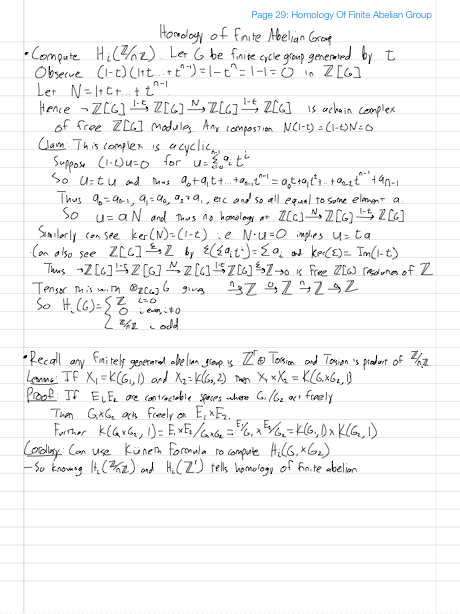 Page 29: Homology Of Finite Abelian Group
Homology of Finite Abelian Group
• Compute H_i(ℤ/nℤ). Let G be finite cycle group generated by t
Observe (1-t)(1+t...+t^{n-1}) = 1-t^n = 1-1 = 0 in ℤ[G]
Let N = 1+t+...+t^{n-1}
Hence → ℤ[G] –1-t→ ℤ[G] –N→ ℤ[G] –1-t→ ℤ[G] is a chain complex
of free ℤ[G] modules. Any composition N(1-t) = (1-t)N = 0
Claim: This complex is acyclic
Suppose (1-t)u=0 for u = Σ_{i=0}^{n-1} a_i t^i
So u = tu and thus a_0+a_1t+...+a_{n-1}t^{n-1} = a_0t+a_1t^2+...+a_{n-2}t^{n-1}+a_{n-1}
Thus a_0=a_{n-1}, a_1=a_0, a_2=a_1, etc and so all equal to some element a.
So u = aN and thus no homology at ℤ[G] –N→ ℤ[G] –1-t→ ℤ[G]
Similarly can see ker(N) = (1-t) i.e. N·u=0 implies u=ta
Can also see ℤ[G] –ε→ ℤ by ε(Σa_i t^i) = Σa_i and ker(ε) = Im(1-t)
Thus → ℤ[G] –1-t→ ℤ[G] –N→ ℤ[G] –1-t→ ℤ[G] –ε→ ℤ → 0 is free ℤ[G] resolution of ℤ
Tensor this with ⊗_{ℤ[G]} G gives –n→ ℤ –0→ ℤ –n→ ℤ –0→ ℤ
So H_i(G) = { ℤ i=0
0 i even, i≠0
ℤ/nℤ i odd
• Recall any finitely generated abelian group is ℤ^r ⊕ Torsion and Torsion is product of ℤ/nℤ
Lemma: If X_1 = K(G_1,1) and X_2 = K(G_2,2) then X_1×X_2 = K(G_1×G_2,1)
Proof: If E_1 E_2 are contractable spaces where G_1/G_2 act freely
Then G_1×G_2 acts freely on E_1×E_2.
Further K(G_1×G_2, 1) = E_1×E_2/G_1×G_2 = E_1/G_1 × E_2/G_2 = K(G_1,1) × K(G_2,1)
Corollary: Can use Künneth Formula to compute H_i(G_1×G_2)
– So knowing H_i(ℤ/nℤ) and H_i(ℤ^r) tells homology of finite abelian